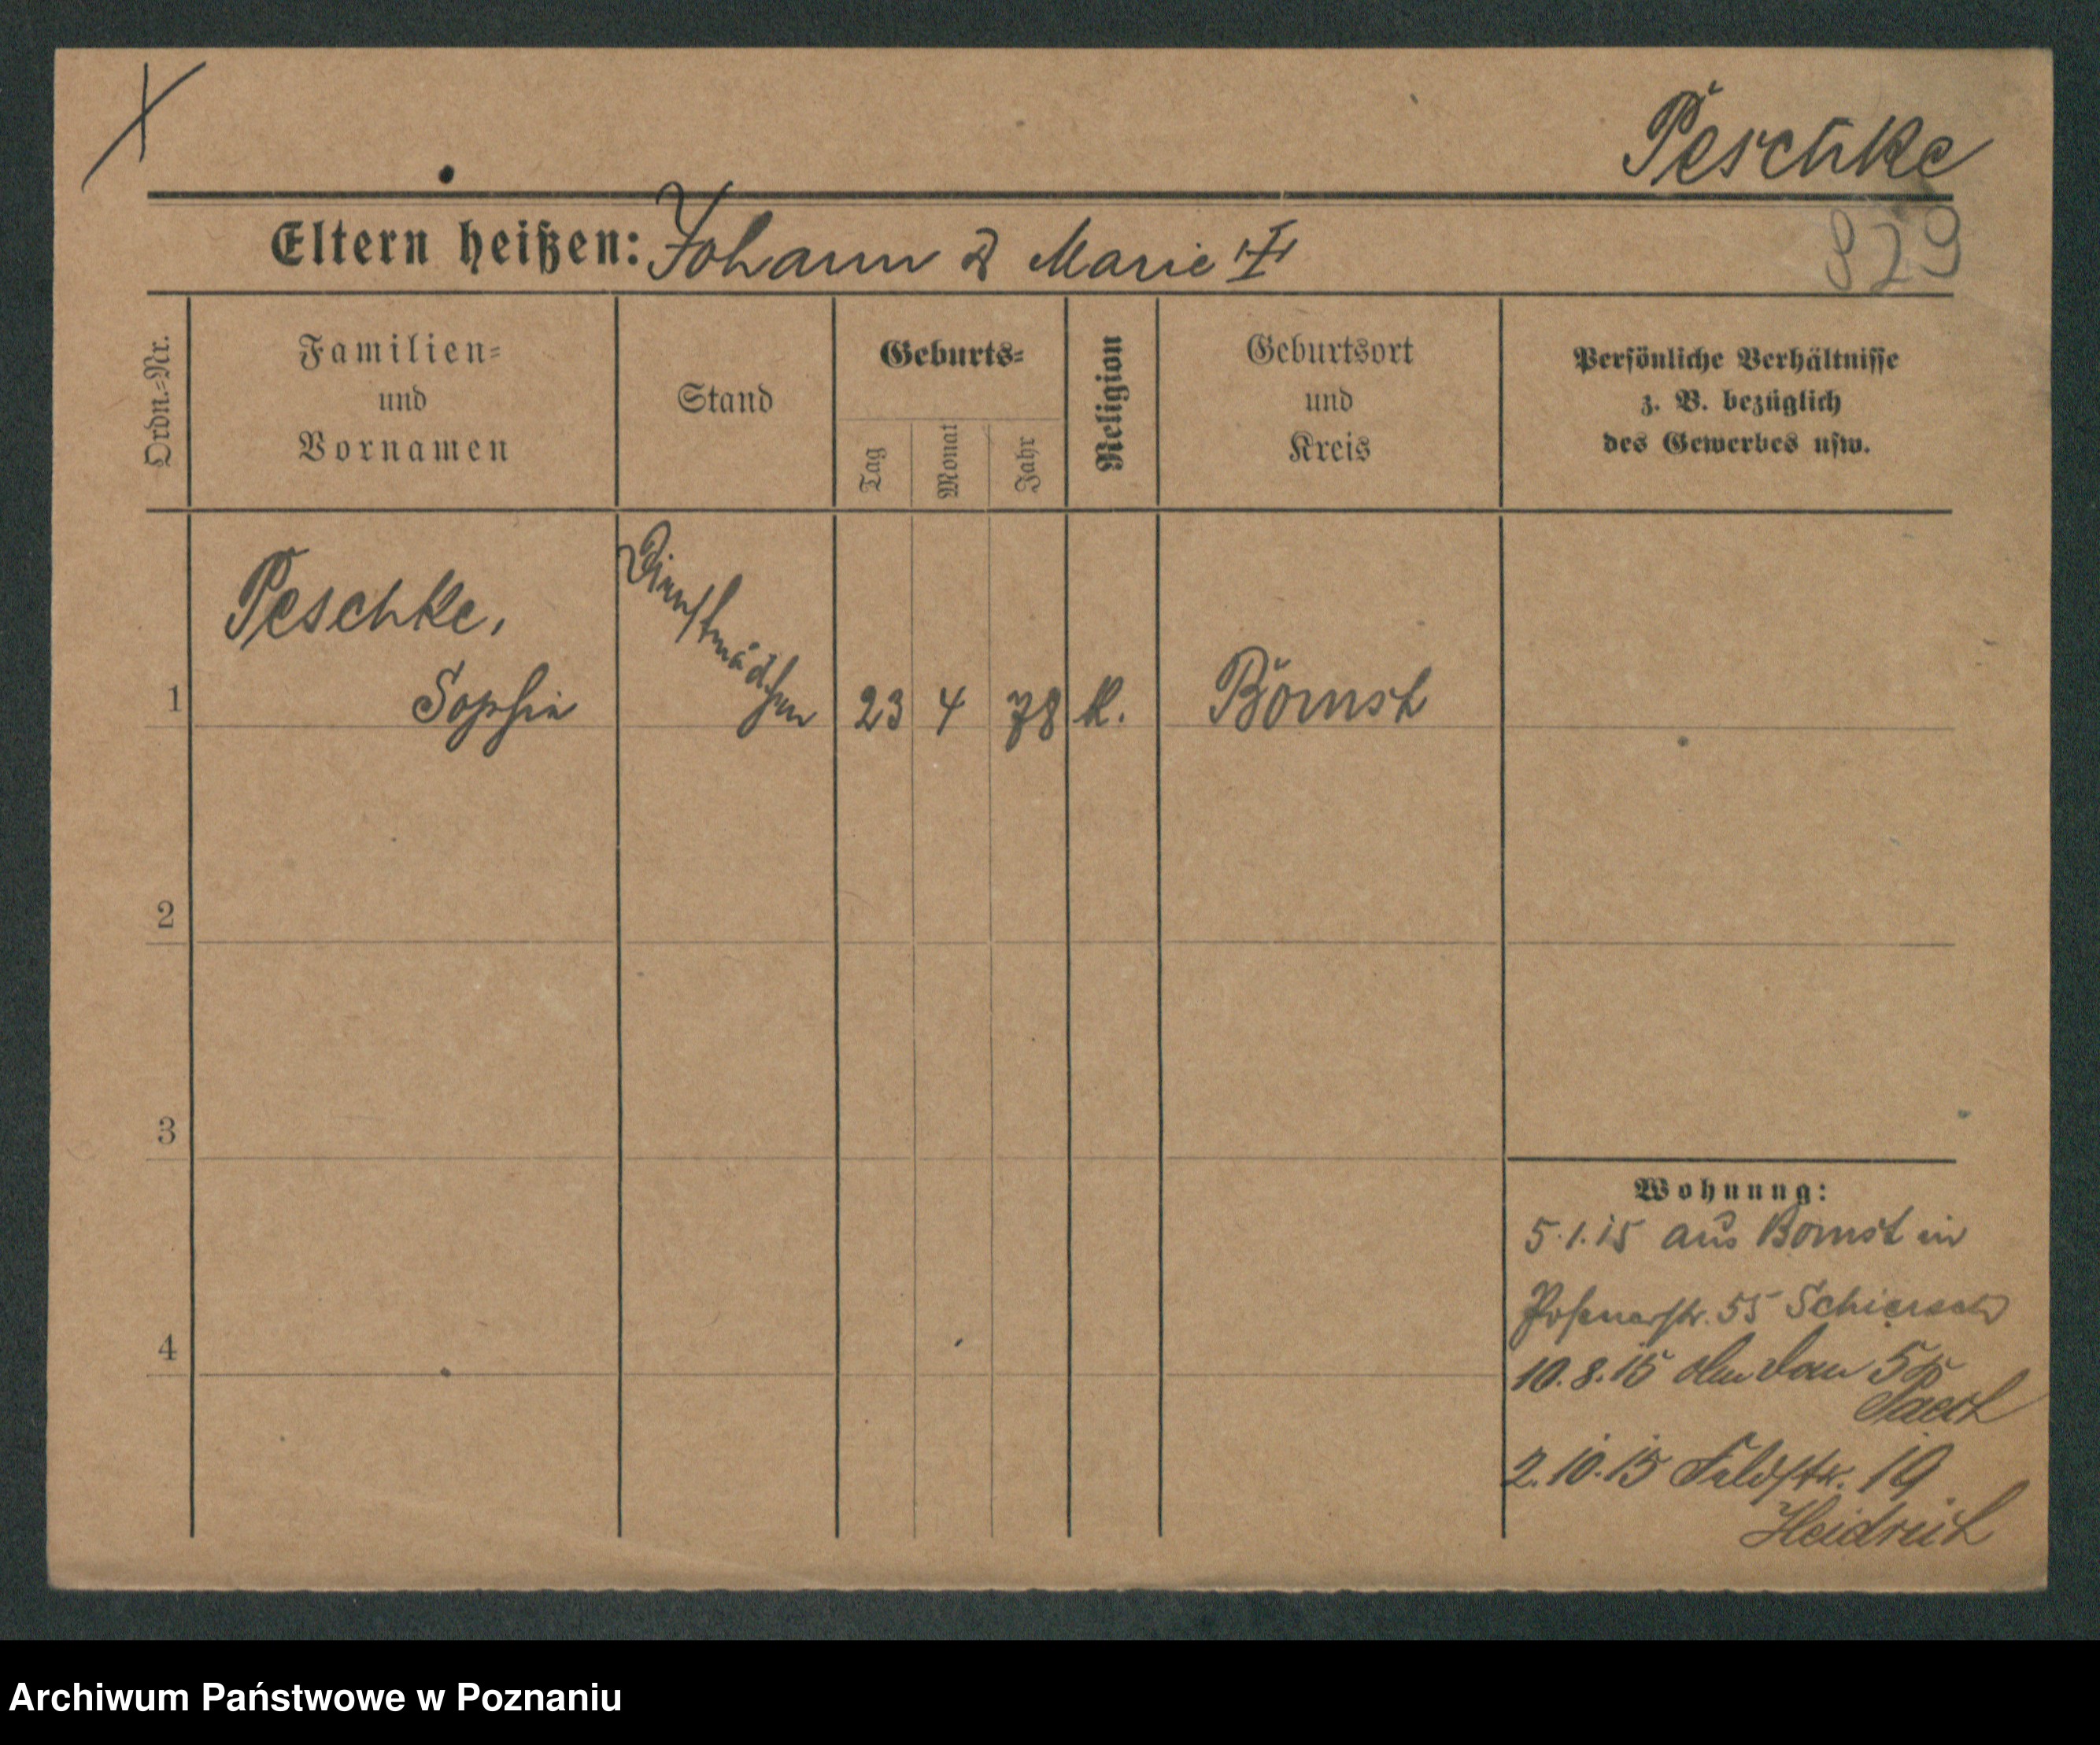 Peschke
829
Eltern heißen: Johann & Marie ‡
Ordn.-Nr.
Familien-
und
Vornamen
Stand
Geburts-
Tag
Monat
Jahr
Religion
Geburtsort
und
Kreis
Persönliche Verhältnisse
z. B. bezüglich
des Gewerbes usw.
1
Peschke,
Sophie
Dienstmädchen
23 4 78 K.
Bomst
2
3
4
Wohnung:
5.1.15 aus Bomst in
Posenerstr. 55 Schiersch
10.8.15 Am Dom 5b
2.10.15 Feldstr. 19
Heidrich
Archiwum Państwowe w Poznaniu